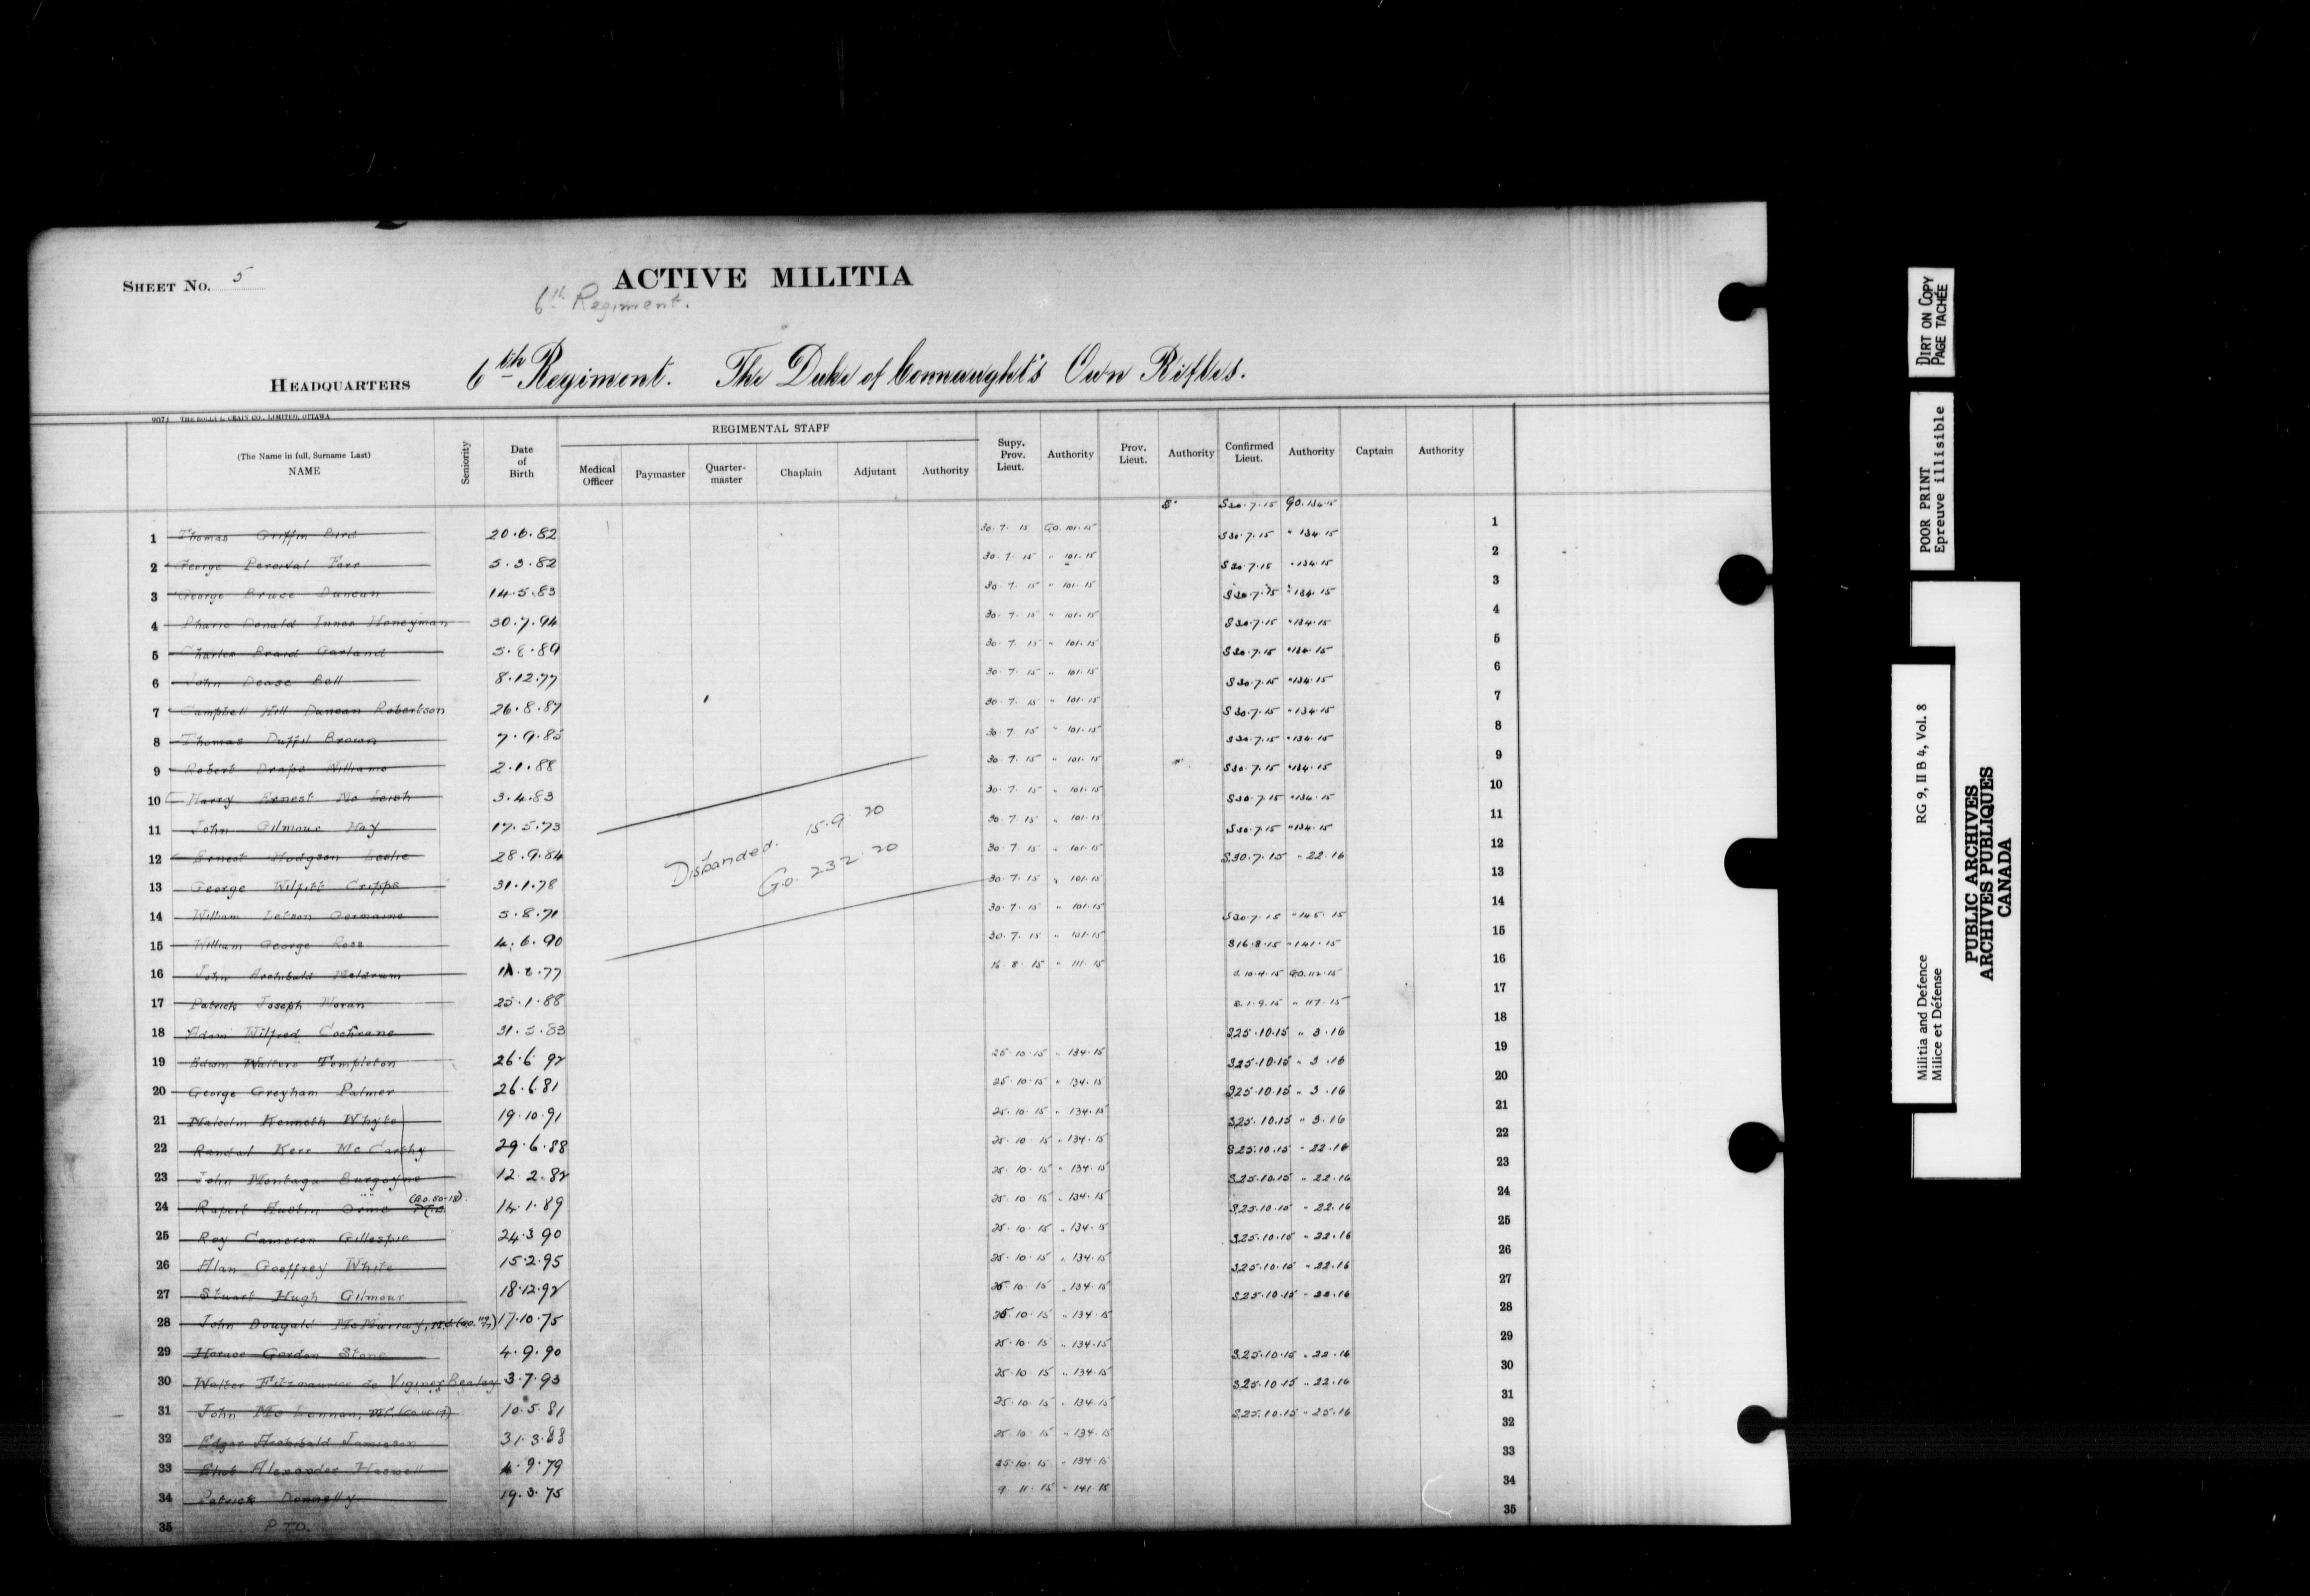 SHEET NO. 5
ACTIVE MILITIA
6th Regiment.
HEADQUARTERS 6th Regiment. The Duke of Connaught's Own Rifles.
9071 THE ROLLA L. CRAIN CO., LIMITED, OTTAWA
REGIMENTAL STAFF
(The Name in full, Surname Last) NAME Seniority Date of Birth Medical Officer Paymaster Quarter-master Chaplain Adjutant Authority Supy. Prov. Lieut. Authority Prov. Lieut. Authority Confirmed Lieut. Authority Captain Authority
S30.7.15 GO.134.15
1 Thomas Griffin Bird 20.6.82 30.7.15 GO.101.15 S30.7.15 " 134.15 1
2 George Percival Farr 5.3.82 30.7.15 " 101.15 S30.7.15 " 134.15 2
3 George Bruce Duncan 14.5.83 30.7.15 " 101.15 S30.7.15 " 134.15 3
4 Donald Innes Honeyman 30.7.94 30.7.15 " 101.15 S30.7.15 " 134.15 4
5 Charles Braid Garland 5.8.89 30.7.15 " 101.15 S30.7.15 " 134.15 5
6 John Dease Bell 8.12.77 30.7.15 " 101.15 S30.7.15 " 134.15 6
7 Campbell Hill Duncan Robertson 26.8.87 30.7.15 " 101.15 S30.7.15 " 134.15 7
8 Thomas Duffil Brown 7.9.85 30.7.15 " 101.15 S30.7.15 " 134.15 8
9 Robert Drape Williams 2.1.88 30.7.15 " 101.15 S30.7.15 " 134.15 9
10 Harry Ernest Mc Leish 3.4.83 30.7.15 " 101.15 S30.7.15 " 134.15 10
11 John Gilmour Hay 17.5.73 30.7.15 " 101.15 S30.7.15 " 134.15 11
12 Ernest Hodgson Leslie 28.9.84 30.7.15 " 101.15 S.30.7.15 " 22.16 12
Disbanded. 15.9.20
GO. 232.20
13 George Cripps 31.1.78 30.7.15 " 101.15 13
14 William Letson Germaine 5.8.71 30.7.15 " 101.15 S30.7.15 " 145.15 14
15 William George Ross 4.6.90 30.7.15 " 101.15 S16.8.15 " 141.15 15
16 John Archibald Meldrum 11.8.77 16.8.15 " 111.15 10.4.15 GO.112.15 16
17 Patrick Joseph Moran 25.1.88 1.9.15 " 117.15 17
18 Adam Wilfred Cochrane 31.5.83 S25.10.15 " 3.16 18
19 Edwin Walters Templeton 26.6.92 25.10.15 " 134.15 S25.10.15 " 3.16 19
20 George Greyham Palmer 26.6.81 25.10.15 " 134.15 S25.10.15 " 3.16 20
21 Malcolm Kenneth Whyte 19.10.91 25.10.15 " 134.15 S25.10.15 " 3.16 21
22 Randal Kerr Mc Carthy 29.6.88 25.10.15 " 134.15 S25.10.15 " 22.16 22
23 John Montagu Burgoyne 12.2.82 25.10.15 " 134.15 S25.10.15 " 22.16 23
24 Rupert Austin Orme M.C. (GO.50-18) 14.1.89 25.10.15 " 134.15 S25.10.15 " 22.16 24
25 Roy Cameron Gillespie 24.3.90 25.10.15 " 134.15 S25.10.15 " 22.16 25
26 Alan Goeffrey White 15.2.95 25.10.15 " 134.15 S25.10.15 " 22.16 26
27 Stuart Hugh Gilmour 18.12.92 25.10.15 " 134.15 S25.10.15 " 22.16 27
28 John Dougald McMurray, 17.10.75 25.10.15 " 134.15 28
29 Horace Gordon Stone 4.9.90 25.10.15 " 134.15 S.25.10.15 " 22.16 29
30 Walter Fitzmaurice de Vigines Bealey 3.7.93 25.10.15 " 134.15 S25.10.15 " 22.16 30
31 John Mc Lennan, M.C. 10.5.81 25.10.15 " 134.15 S.25.10.15 " 25.16 31
32 Edgar Archibald Jamieson 31.3.88 25.10.15 " 134.15 32
33 Eliot Alexander Haswell 4.9.79 25.10.15 " 134.15 33
34 Patrick Donnelly 19.3.75 9.11.15 " 141.15 34
35 P.T.O. 35
DIRT ON COPY
PAGE TACHÉE
POOR PRINT
Epreuve illisible
Militia and Defence RG 9, II B 4, Vol. 8
Milice et Défense
PUBLIC ARCHIVES
ARCHIVES PUBLIQUES
CANADA